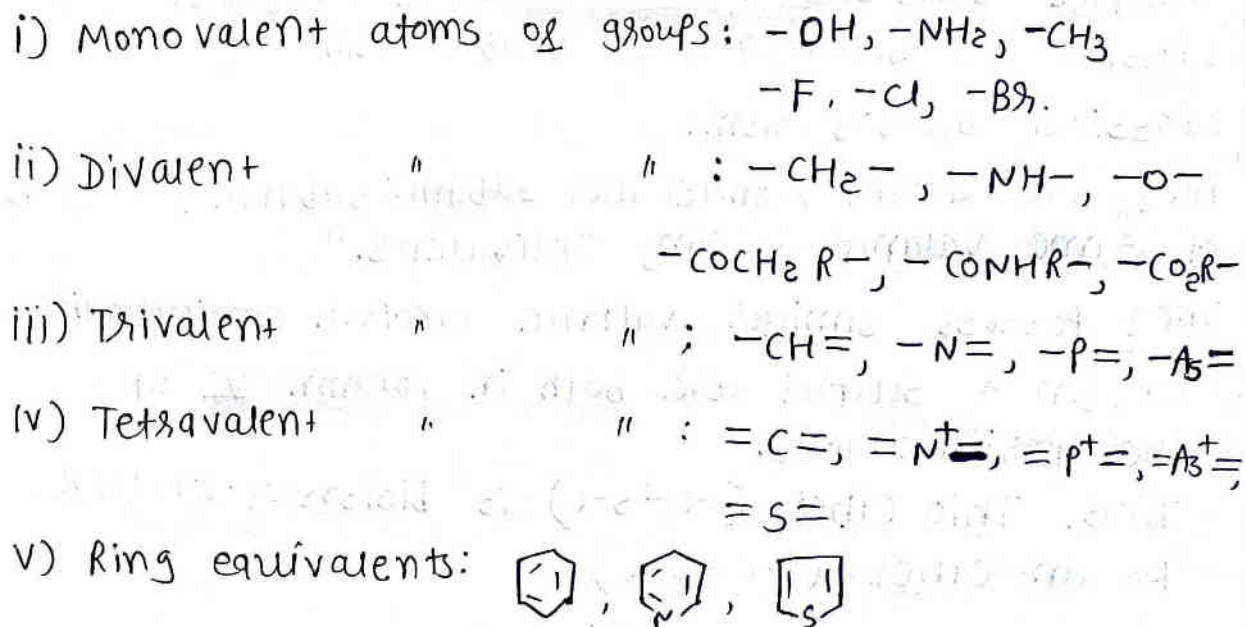 i) Monovalent atoms of groups: -OH, -NH2, -CH3
-F, -Cl, -Br.
ii) Divalent " " : -CH2-, -NH-, -O-
-COCH2 R-, -CONHR-, -CO2R-
iii) Trivalent " " ; -CH=, -N=, -P=, -As=
iv) Tetravalent " " : =C=, =N+=, =P+=, =As+=,
=S=
v) Ring equivalents: , N , S